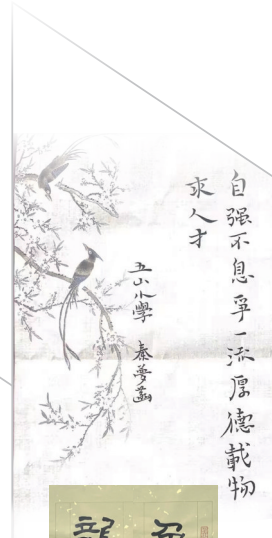 自强不息爭一流厚德載物
求人才
五山小學 秦夢
龍